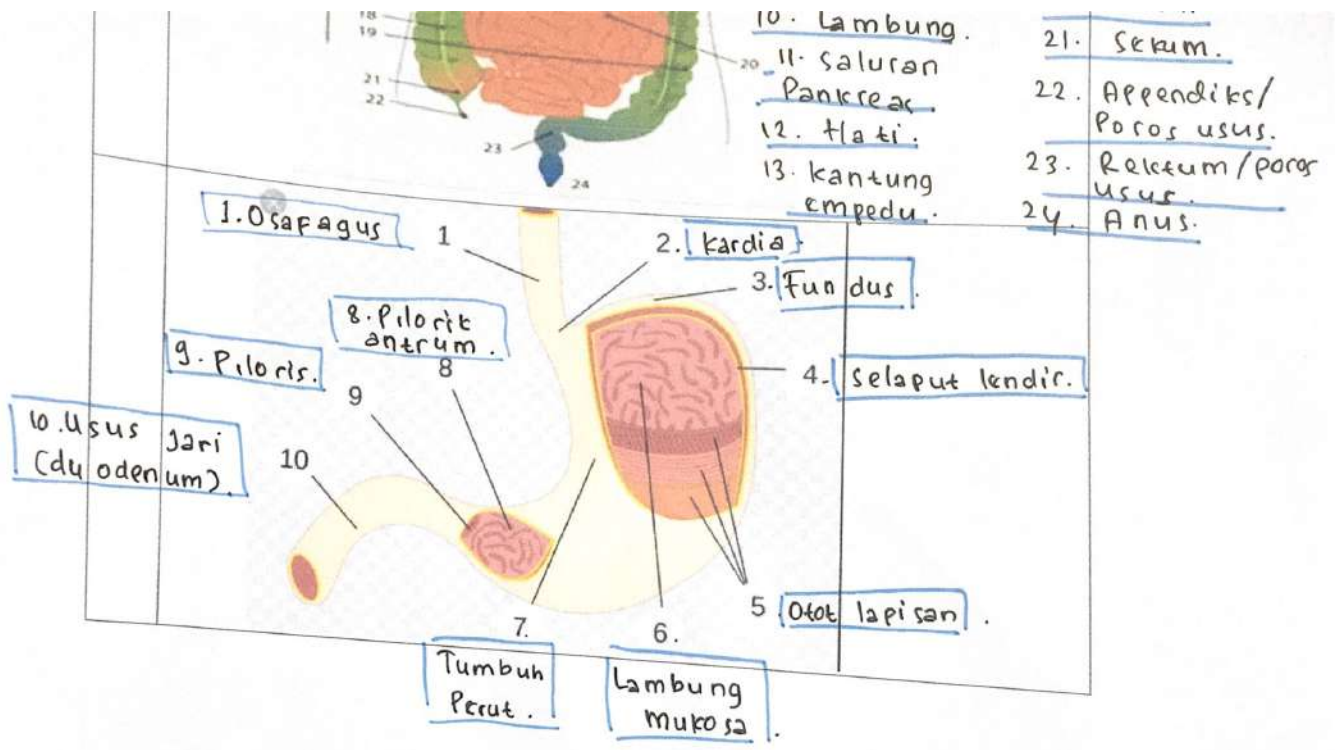 18
19
20
21
22
23
24
10. Lambung.
11. Saluran
Pankreas.
12. Hati.
13. kantung
empedu.
21. Sekum.
22. Appendiks/
Poros usus.
23. Rektum/poros
usus.
24. Anus.
1. Osafagus
1
2. kardia
3. Fundus.
8. Pilorik
antrum.
8
9. Piloris.
9
4. Selaput lendir.
10. Usus Jari
(duodenum).
10
5 Otot lapisan.
7.
Tumbuh
Perut.
6.
Lambung
mukosa.